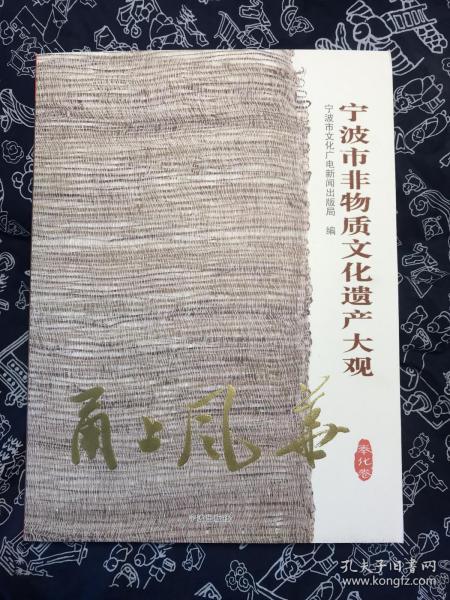 宁波市非物质文化遗产大观
宁波市文化广电新闻出版局 编
甬上风华
奉化卷
宁波出版社
孔夫子旧书网
www.kongfz.com